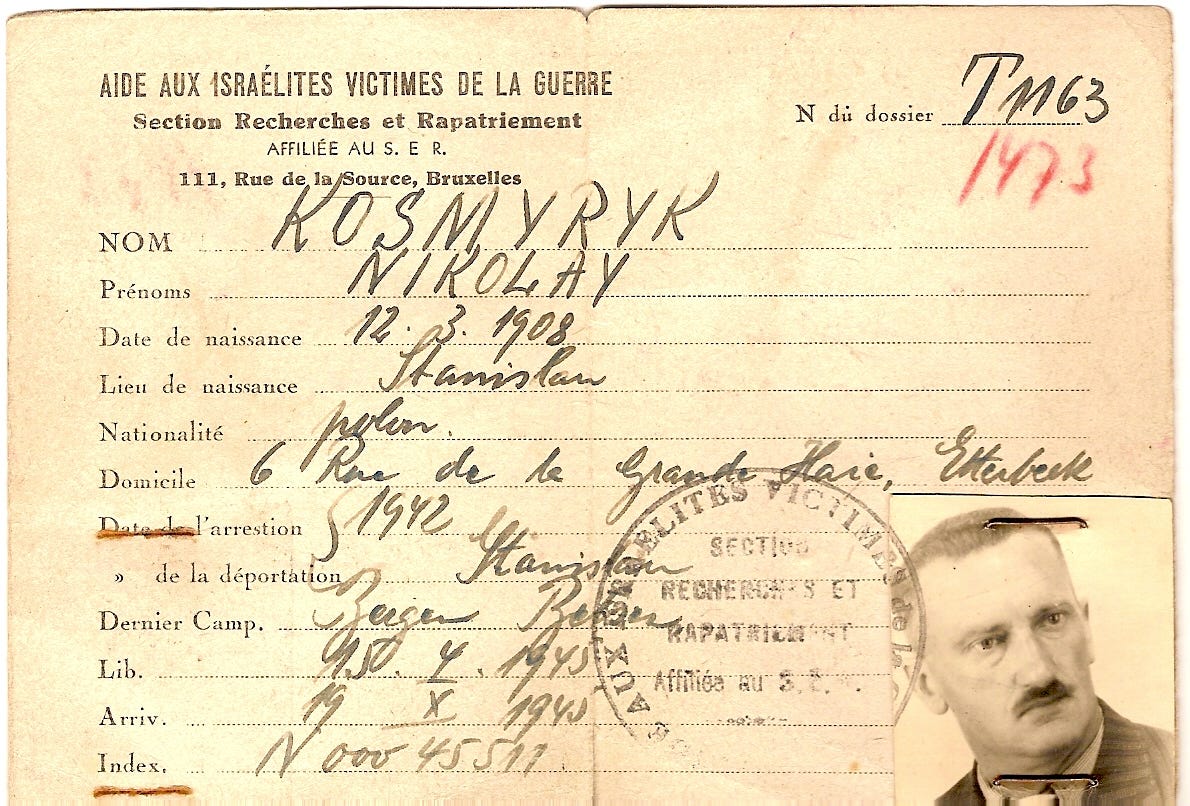 AIDE AUX ISRAÉLITES VICTIMES DE LA GUERRE
Section Recherches et Rapatriement
AFFILIÉE AU S. E R.
111, Rue de la Source, Bruxelles
N dù dossier T 1163
1473
NOM KOSMYRYK
Prénoms NIKOLAY
Date de naissance 12. 3. 1908
Lieu de naissance Stanislau
Nationalité polon.
Domicile 6 Rue de la Grande Haie, Etterbeek
Date de l'arrestion 1942
» de la déportation Stanislau
Dernier Camp. Bergen Belsen
Lib. 15. 4. 1945
Arriv. 19 X 1945
Index. N 000 45511
AUX ISRAELITES VICTIMES de la
SECTION
RECHERCHES ET
RAPATRIEMENT
Affiliée au S. E.